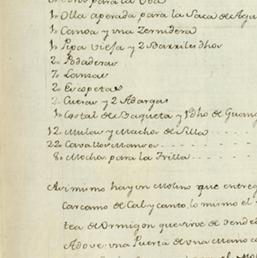 para la Uba
1„ Olla aperada para la Saca de Agu
1„ Canoa y vna Zernidera
1„ Pipa vieja y 2 Barriles dhos
2„ Podaderas
7„ Lanzas
2„ Escopetas
2„ Cueras y 2 Adargas
1„ Costal de Baqueta y 1 dho de Guang
12„ Mulas y Machos de Silla
22„ Cavallos Mansos
8„ Mochos para la Trilla
Asi mismo hay un Molino que entreg
Carcamo de Cal y canto, lo mismo el
tea de Ormigon que sirve de
Adove: vna Puerta de vna Mano co